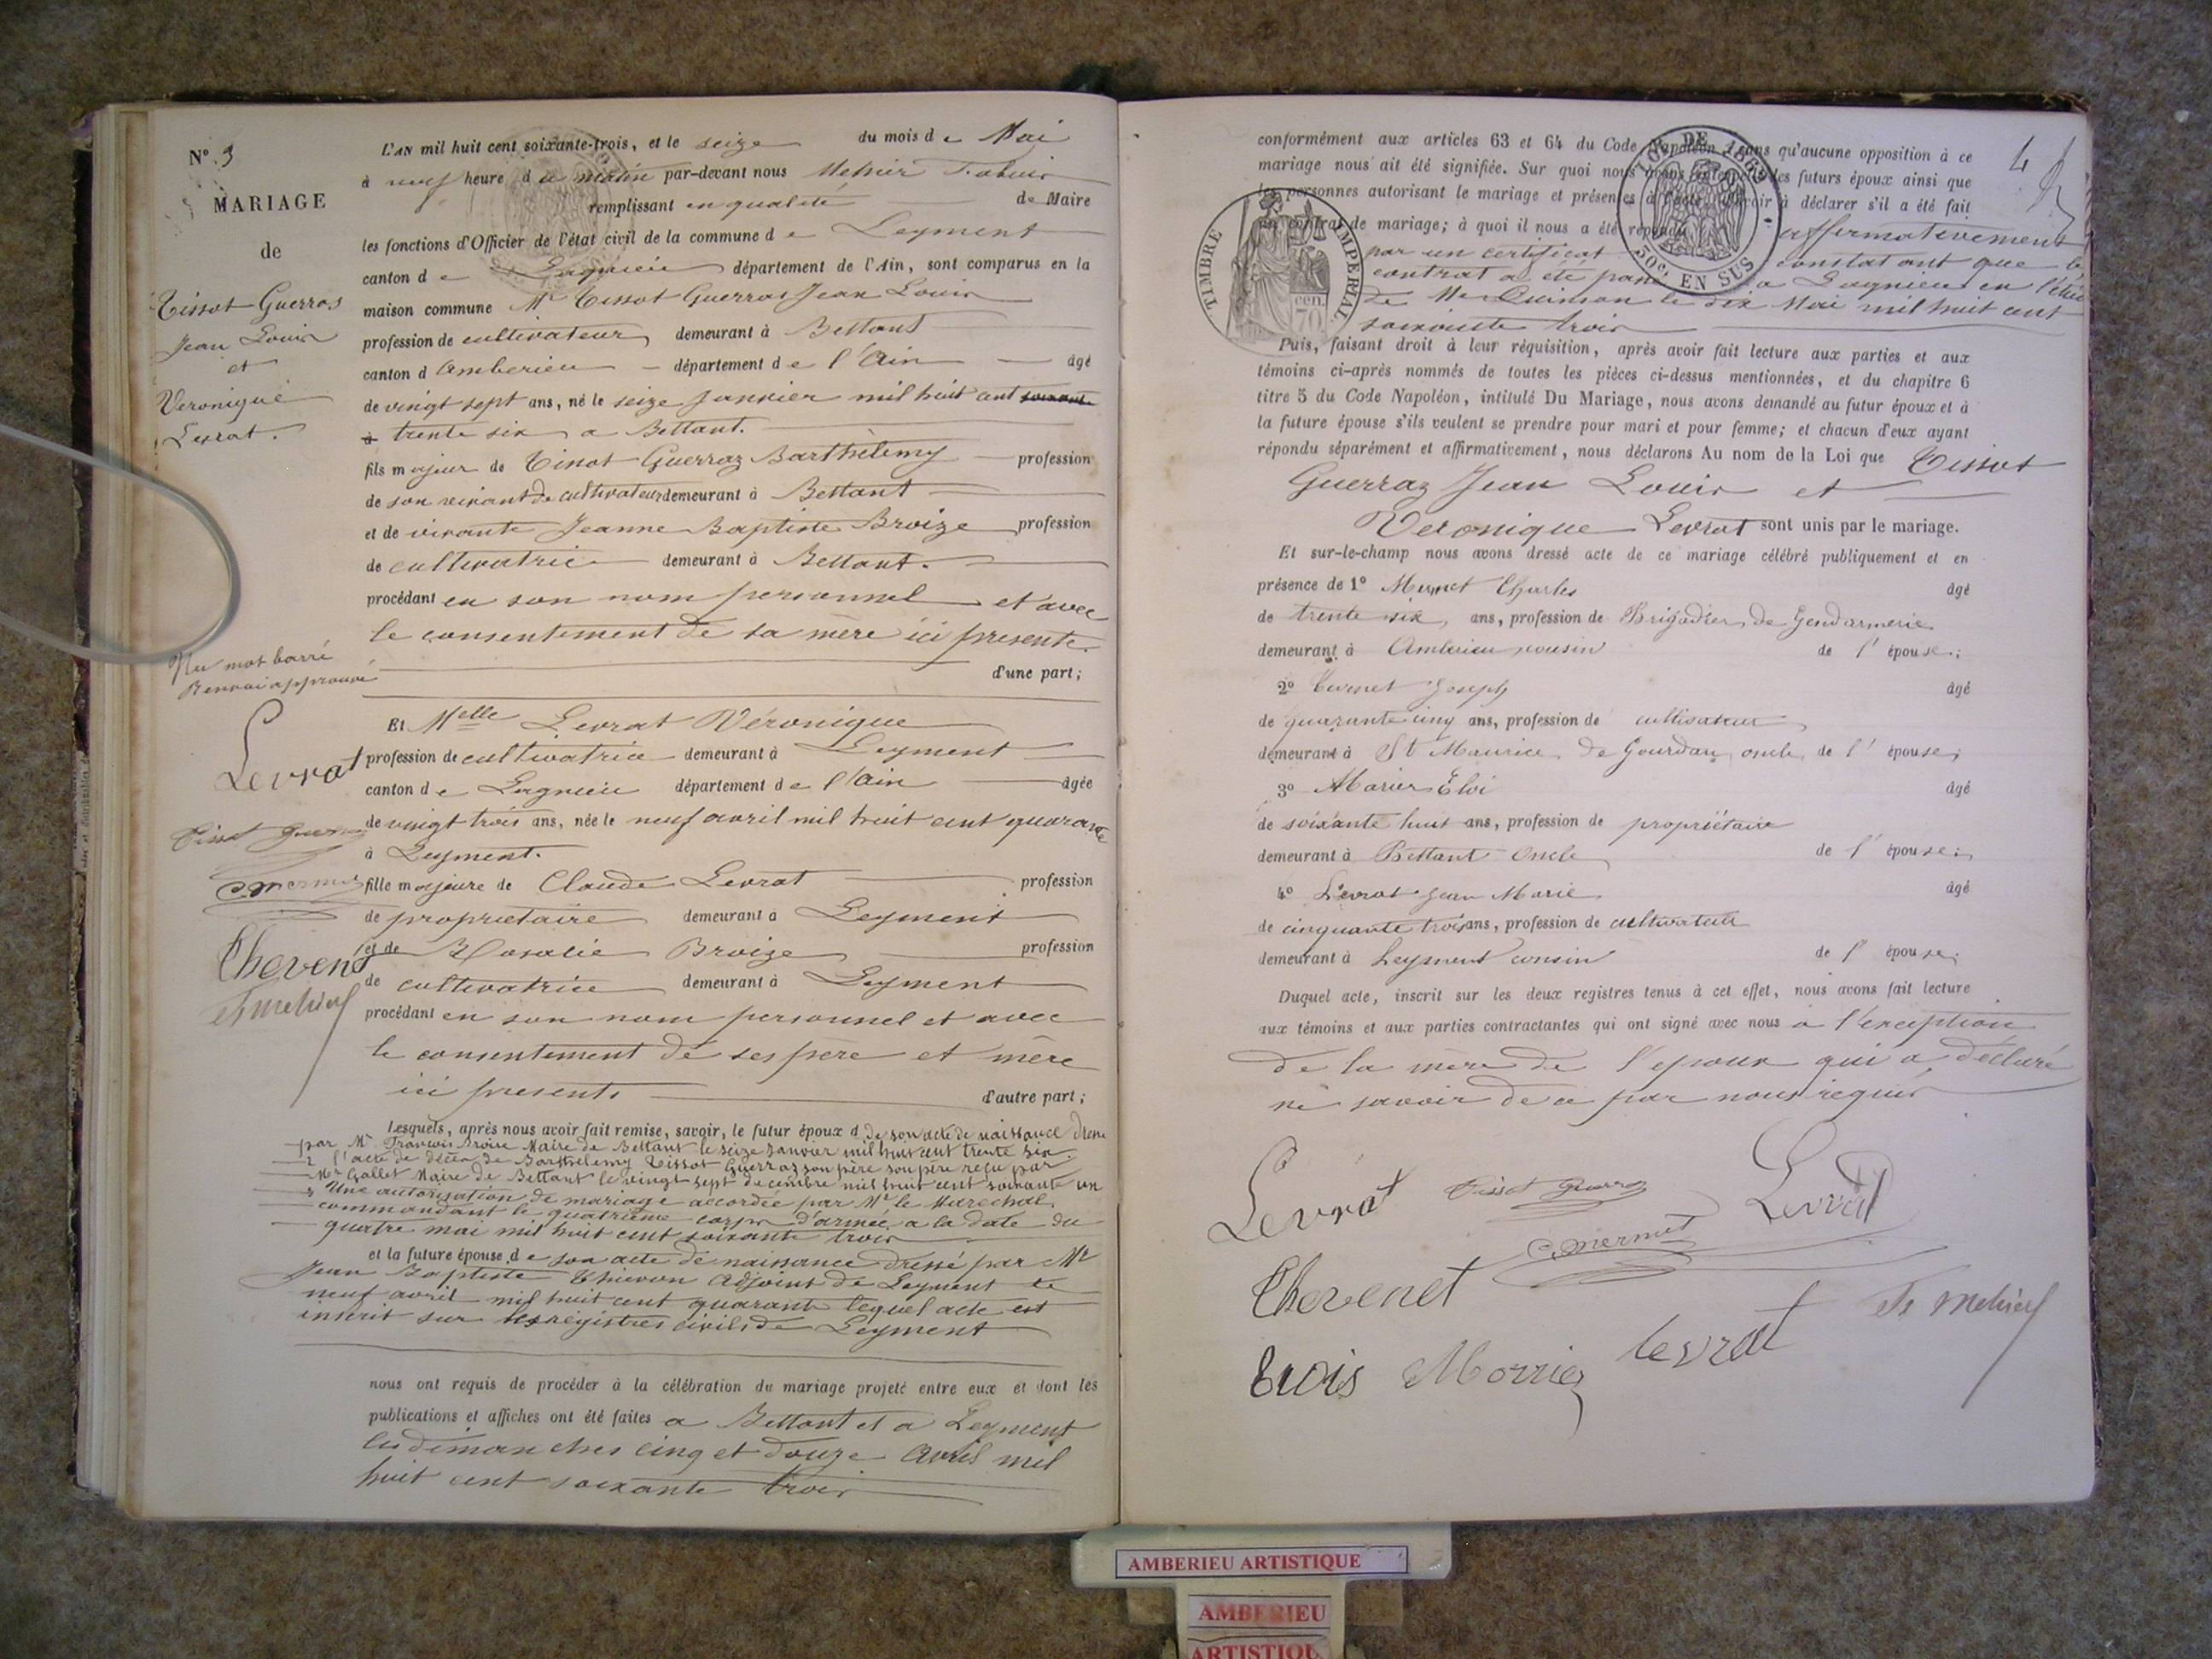 N° 3
MARIAGE
de
Tissot Guerras
Jean Louis
et
Veronique
Levrat.
L'AN mil huit cent soixante-trois, et le seize du mois de Mai
à neuf heure du matin par-devant nous
remplissant en qualité de Maire
les fonctions d'Officier de l'état civil de la commune de Leyment
canton de Lagnieu département de l'Ain, sont comparus en la
maison commune Mr Tissot Guerras Jean Louis
profession de cultivateur demeurant à Bettant
canton d Amberieu département de l'Ain âgé
de vingt sept ans, né le seize Janvier mil huit cent
trente six a Bettant.
fils majeur de Tissot Guerraz Barthélemy profession
de son vivant de cultivateur demeurant à Bettant
et de vivante Jeanne Baptiste Broize profession
de cultivatrice demeurant à Bettant.
procédant en son nom personnel et avec
le consentement de sa mère ici presente.
d'une part;
Un mot barré
Renvoi approuvé
Et Melle Levrat Véronique
profession de cultivatrice demeurant à Leyment
canton de Lagnieu département de l'Ain âgée
de vingt trois ans, née le neuf avril mil huit cent quarante
à Leyment.
fille majeure de Claude Levrat profession
de propriétaire demeurant à Leyment
et de Rosalie Broize profession
de cultivatrice demeurant à Leyment
procédant en son nom personnel et avec
le consentement de ses père et mère
ici presents d'autre part;
Levrat
Tissot Guerraz
C. Mermet
Chevenet
Lesquels, après nous avoir fait remise, savoir, le futur époux d de son acte de naissance dressé
par Mr François Broize Maire de Bettant le seize Janvier mil huit cent trente six
2 l'acte de décès de Barthélemy Tissot Guerraz son père son père reçu par
Mr Gallet Maire de Bettant le vingt sept decembre mil huit cent soixante un
3 Une autorisation de mariage accordée par Mr le Marechal
commandant le quatrième corps d'armée a la date du
quatre mai mil huit cent soixante trois
et la future épouse de son acte de naissance dressé par Mr
Jean Baptiste Thievon Adjoint de Leyment le
neuf avril mil huit cent quarante lequel acte est
inscrit sur les registres civils de Leyment
nous ont requis de procéder à la célébration du mariage projeté entre eux et dont les
publications et affiches ont été faites a Bettant et a Leyment
les dimanches cinq et douze Avril mil
huit cent soixante trois
4
conformément aux articles 63 et 64 du Code Napoléon, sans qu'aucune opposition à ce
mariage nous ait été signifiée. Sur quoi nous avons interpellé les futurs époux ainsi que
les personnes autorisant le mariage et présentes à l'acte, d'avoir à déclarer s'il a été fait
un contrat de mariage; à quoi il nous a été répondu affirmativement
par un certificat constatant que le
contrat a été passé a Lagnieu en l'étude
de Me Quinson le dix Mai mil huit cent
soixante trois
LOI DE 1862
50c. EN SUS
TIMBRE IMPERIAL
70 cen.
Puis, faisant droit à leur réquisition, après avoir fait lecture aux parties et aux
témoins ci-après nommés de toutes les pièces ci-dessus mentionnées, et du chapitre 6
titre 5 du Code Napoléon, intitulé Du Mariage, nous avons demandé au futur époux et à
la future épouse s'ils veulent se prendre pour mari et pour femme; et chacun d'eux ayant
répondu séparément et affirmativement, nous déclarons Au nom de la Loi que Tissot
Guerraz Jean Louis et
Veronique Levrat sont unis par le mariage.
Et sur-le-champ nous avons dressé acte de ce mariage célébré publiquement et en
présence de 1° Mermet Charles âgé
de trente six ans, profession de Brigadier de Gendarmerie
demeurant à Amberieu cousin de l'épouse;
2° Joseph âgé
de quarante cinq ans, profession de cultivateur
demeurant à St Maurice de Gourdan oncle de l'épouse;
3° Eloi âgé
de soixante huit ans, profession de propriétaire
demeurant à Bettant oncle de l'épouse;
4° Levrat Jean Marie âgé
de cinquante trois ans, profession de cultivateur
demeurant à Leyment cousin de l'épouse;
Duquel acte, inscrit sur les deux registres tenus à cet effet, nous avons fait lecture
aux témoins et aux parties contractantes qui ont signé avec nous a l'exception
de la mère de l'epoux qui a déclaré
ne savoir de ce par nous requis
Levrat Tissot Guerraz Levrat
C. Mermet
Chevenet
Morriez levrat
AMBERIEU ARTISTIQUE
AMBERIEU
ARTISTIQU